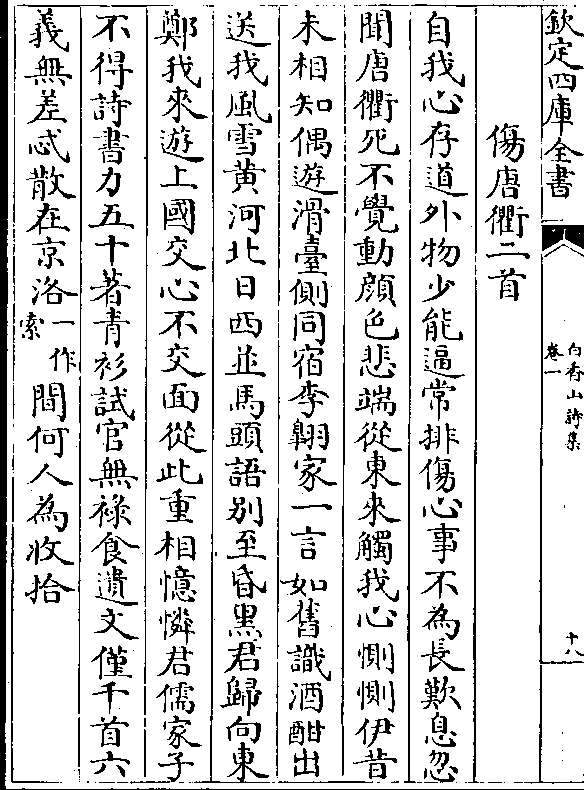 欽定四庫全書
白香山詩集
卷一
十八
傷唐衢二首
自我心存道外物少能逼常排傷心事不為長歎息忽
聞唐衢死不覺動顔色悲端從東來觸我心惻惻伊昔
未相知偶遊滑臺側同宿李翺家一言如舊識酒酣出
送我風雪黄河北日西並馬頭語别至昏黑君歸向東
鄭我來遊上國交心不交面從此重相憶憐君儒家子
不得詩書力五十著青衫試官無禄食遺文僅千首六
義無差忒散在京洛一作索間何人為收拾